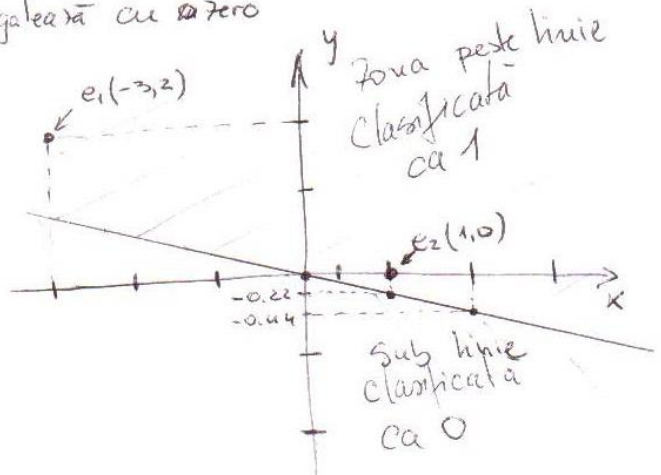 galează cu zero
y
e₁(-3,2)
Zona peste linie
clasificată
ca 1
e₂(1,0)
-0.22
-0.44
x
Sub linie
clasificată
ca 0